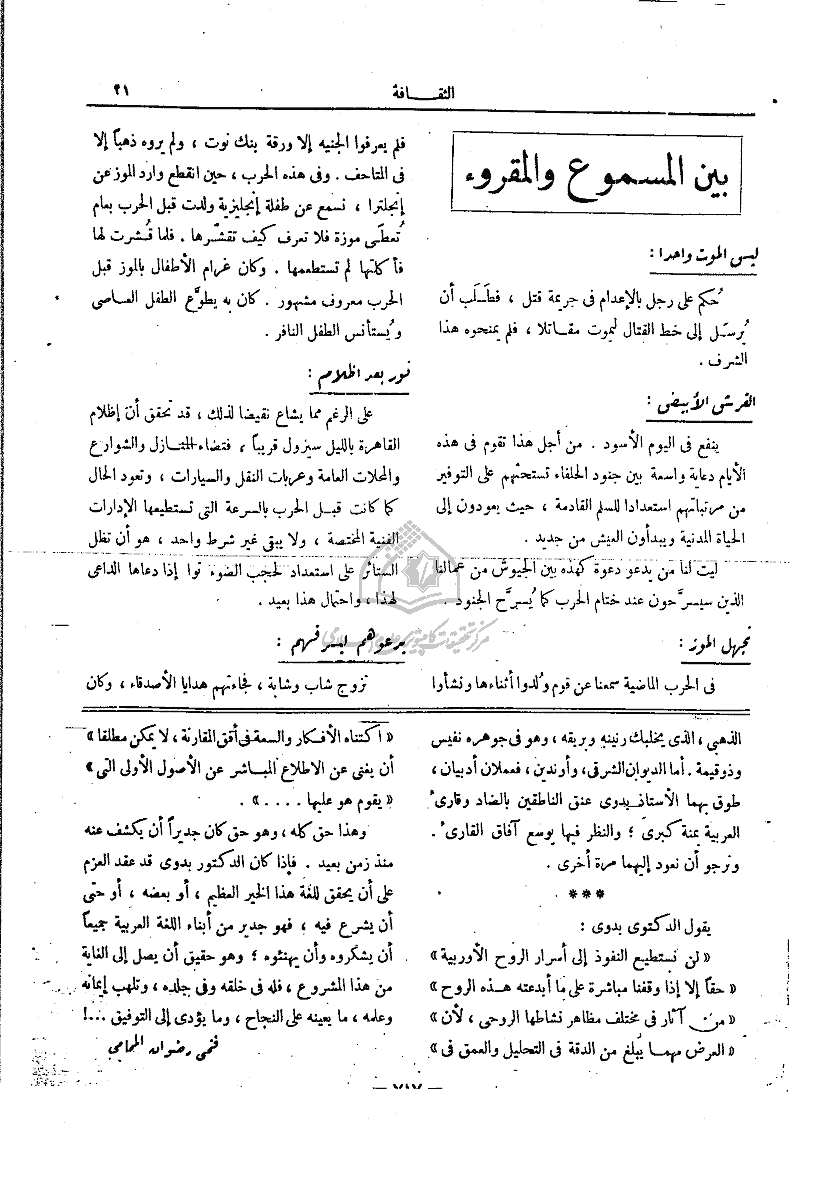 ٢١
الثقـافة
بين المسموع والمقروء
ليس الموت واحدا :
حُكم على رجل بالإعدام فى جريمة قتل ، فطَـلَب أن
يُرسَـل إلى خط القتال ليموت مقـاتلا ، فلم يمنحوه هذا
الشرف .
القرش الأبيض :
ينفع فى اليوم الأسود . من أجل هذا تقوم فى هذه
الأيام دعاية واسعة بين جنود الحلفاء تستحثهم على التوفير
من مرتباتهم استعدادا للسلم القادمة ، حيث يعودون إلى
الحياة المدنية ويبدأون العيش من جديد .
ليت لنا من يدعو دعوة كهذه بين الجيوش من عمالنا
الذين سيسرَّحون عند ختام الحرب كما يُسرَّح الجنود .
تجهل الموز :
فى الحرب الماضية سمعنا عن قوم وُلدوا أثناءها ونشأوا
فلم يعرفوا الجنيه إلا ورقة بنك نوت ، ولم يروه ذهباً إلا
فى المتاحف . وفى هذه الحرب ، حين انقطع وارد الموز عن
إنجلترا ، نسمع عن طفلة إنجليزية ولدت قبل الحرب بعام
تُعطَى موزة فلا تعرف كيف تقشّرها . فلما قُشرت لها
فأكلتها لم تستطعمها . وكان غرام الأطفال بالموز قبل
الحرب معروف مشهور . كان به يطوَّع الطفل العـاصى
ويُستأنس الطفل النافر .
نور بعد الظلام :
على الرغم مما يشاع نقيضا لذلك ، قد تحقق أن إظلام
القاهرة بالليل سيزول قريباً ، فتضاء المنـازل والشوارع
والمحلات العامة وعربات النقل والسيارات ، وتعود الحال
كما كانت قبـل الحرب بالسرعة التى تستطيعها الإدارات
الفنية المختصة ، ولا يبقى غير شرط واحد ، هو أن تظل
الستائر على استعداد لحجب الضوء توا إذا دعاها الداعى
لهذا ، واحتمال هذا بعيد .
يدعوهم ليسرقهم :
تزوج شاب وشابة ، فجاءتهم هدايا الأصدقاء ، وكان
الذهبى ، الذى يخلبك رنينه وبريقه ، وهو فى جوهره نفيس
وذوقيمة . أما الديوان الشرقى ، وأوندين ، فعملان أدبيان ،
طوق بهما الأستاذ بدوى عنق الناطقين بالضاد وقارىء
العربية بمنة كبرى ؛ والنظر فيها يوسع آفاق القارىء .
ونرجو أن نعود إليهما مرة أخرى .
***
يقول الدكتوى بدوى :
« لن نستطيع النفوذ إلى أسرار الروح الأوربية »
« حقاً إلا إذا وقفنا مباشرة على ما أبدعته هـذه الروح »
« من آثار فى مختلف مظاهر نشاطها الروحى ، لأن »
« العرض مهمـا يُبلغ من الدقة فى التحليل والعمق فى »
« اكتناه الأفـكار والسعة فى أفق المقارنة ، لا يمكن مطلقا »
أن يغنى عن الاطلاع المبـاشر عن الأصول الأولى التى »
« يقوم هو عليها . . . . » .
وهذا حق كله ، وهو حق كان جديراً أن يكشف عنه
منذ زمن بعيد . فإذا كان الدكتور بدوى قد عقد العزم
على أن يحقق للغة هذا الخير العظيم ، أو بعضه ، أو حتى
أن يشرع فيه ، فهو جدير من أبناء اللغة العربية جميعاً
أن يشكروه وأن يهنئوه ؛ وهو حقيق أن يصل إلى الغاية
من هذا المشروع ، فله فى خلقه وفى جلده ، وتلهب إيمانه
وعلمه ، ما يعينه على النجاح ، وما يؤدى إلى التوفيق ...!
فتحى رضوان المحامى
— ٧١٧ —
مركز تحقيقات كامپيوترى علوم اسلامى